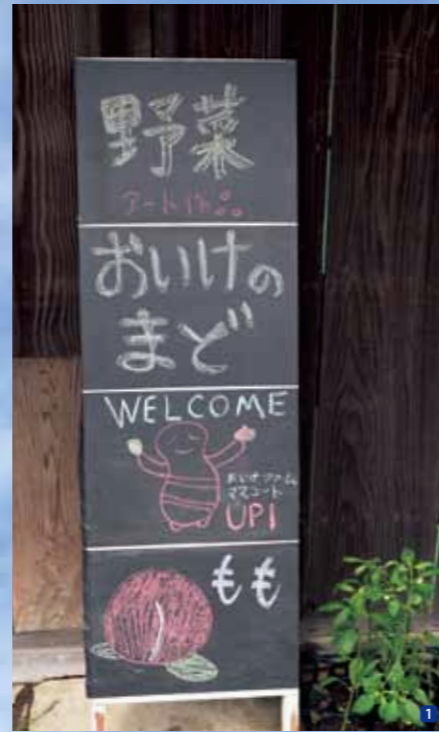 野菜
アート作品
おいけの
まど
WELCOME
おいけファーム
マスコート
UPI
もも
1